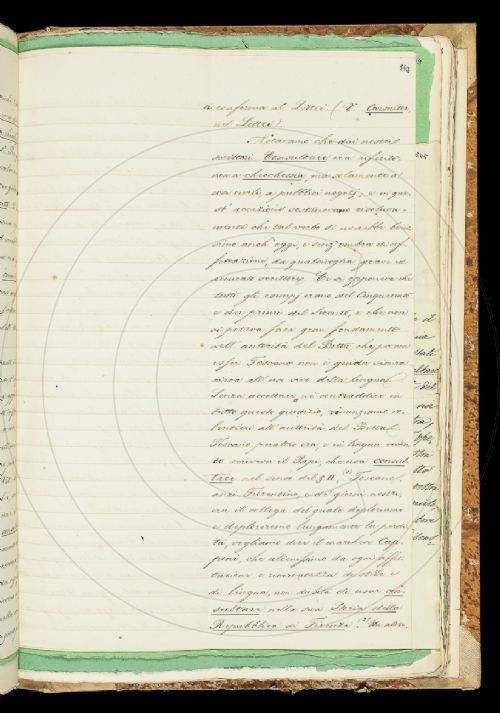 113
si conferma al Littré. (V. Consulter,
nel Littré).
Notavano che dai nostri
scrittori Consultare era riferito
non a checchessia, ma solamente a
cose civili, a pubblici negozj, e in que
st' accezione
mente che tal verbo si userebbe benis
simo anch' oggi, e senz' ombra di af
fettazione, da qualsivoglia grave ed
accurato scrittore. Era apponeva che
tutti gli esempj erano del Cinquecento
e dei primi del Seicento, e che non
si poteva fare gran fondamento
nell' autorità del Botta, che per non
esser Toscano non è guida sicura
circa all' uso vivo della lingua.
Senza accettare nè contraddire in
tutto questo giudizio, rinunziamo vo
lentieri all' autorità del Botta.
Toscano peraltro era, e in lingua viven
te scriveva il Papi, che usa consul
tare nel senso del § II. (2) Toscano,
anzi Fiorentino, e de' giorni nostri,
era il collega del quale deploriamo
e deploreremo lungamente la perdi
ta, vogliamo dire il marchese Cap
poni, che alienissimo da ogni affet
tazione e ricercatezza di stile e
di lingua, non dubitò di usar con
sultare nella sua Storia della
Repubblica di Firenze. Un altro,